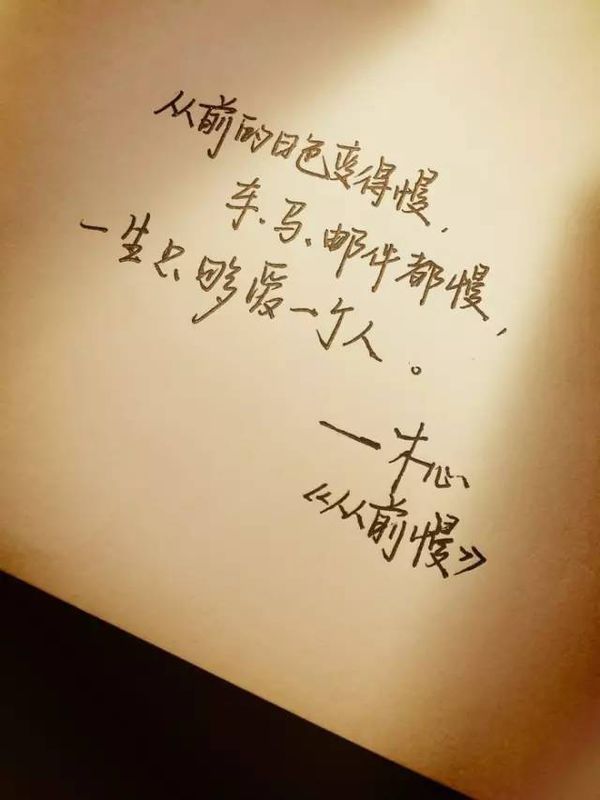 从前的日色变得慢，
车、马、邮件都慢，
一生只够爱一个人。
——木心
《从前慢》